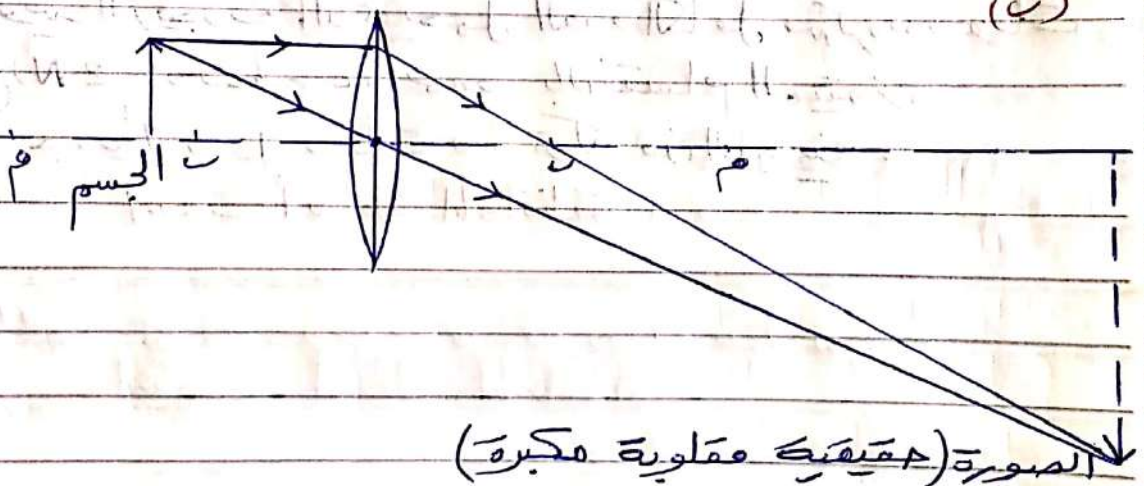 (ب)
م الجسم ب ب م
الصورة (حقيقية مقلوبة مكبرة)